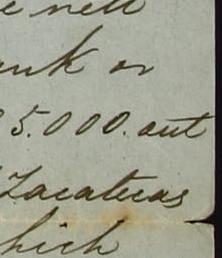 e nett
ank or
5.000. out
Zacatecas
hich